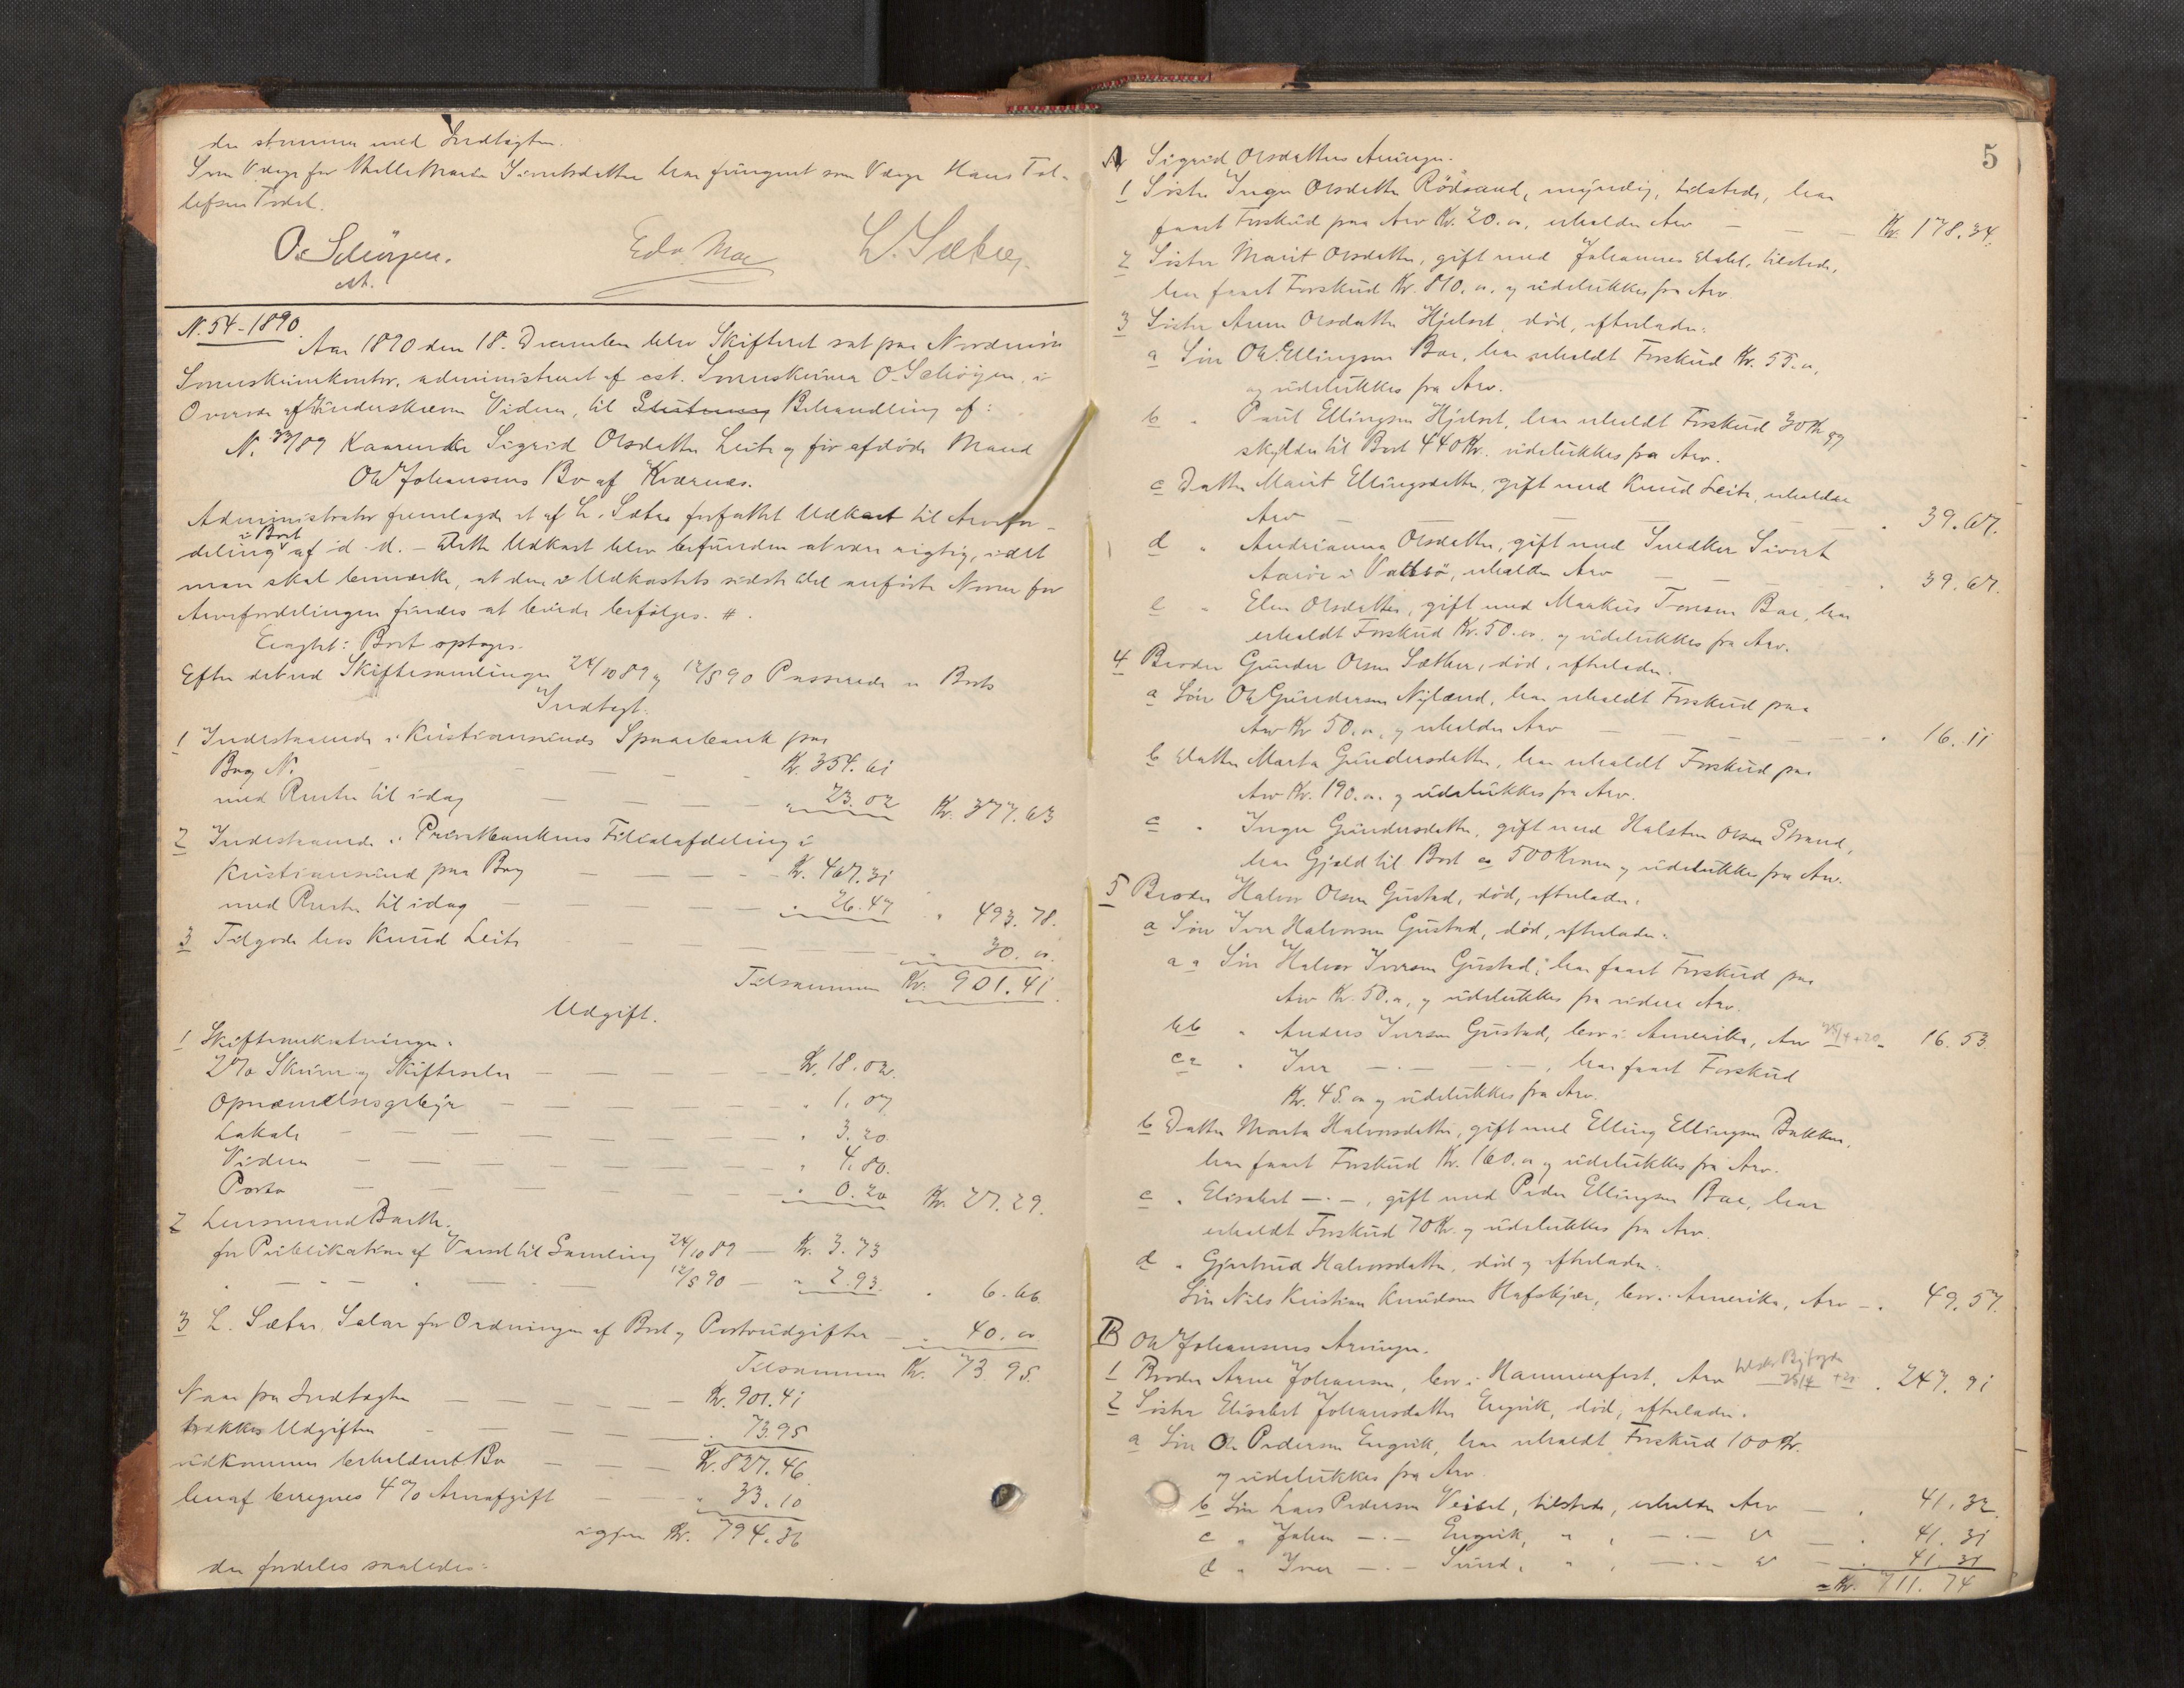 der stemmer med Indtægten.
Som Værge for Malle Marie Sivertsdatter har fungeret som Værge Hans Tol-
lefsen Tødal.
O. Schöyen.
cst.
Edv. Moe
L. Sæter.
N. 54-1890.
Aar 1890 den 18. December blev Skifteret sat paa Nordmøre
Sorenskriverkontor, administreret af cst. Sorenskriver O. Schöyen, i
Overvær af Underskrevne Vidner, til Slutning Behandling af:
N. 33/89 Kaarenke Sigrid Olsdatter Leite og før afdøde Mand
Ole Johansens Bo af Kværnæs.
Administrator fremlagde et af L. Sæter forfattet Udkast til Arvefor-
deling i Boet af d. d. – Dette Udkast blev befunden at være rigtig, idet
man skal bemærke, at den i Udkastets sidste Del anførte Norm for
Arvefordelingen findes at burde befølges. #.
Eragtet: Boet optages.
Efter det ved Skiftesamlinger 24/10 89 og 12/5 90 Passerede er Boets
Indtægt.
1 Indestaaende i Kristiansunds Sparebank paa
Bog N. — Kr. 354.61
med Renter til idag — " 23.02 Kr. 377.63
2 Indestaaende i Privatbankens Filialafdeling i
Kristiansund paa Bog — Kr. 467.31
med Renter til idag — " 26.47 " 493.78.
3 Tilgode hos Knud Leite — " 30. "
Tilsammen Kr. 901.41.
Udgift.
1 Skifteomkostninger.
2% Skriver og Skiftesalær — Kr. 18.02.
Opnævnelsesgebyr — " 1.07
Lokale — " 3.20.
Vidner — " 4.80.
Porto — " 0.20 Kr. 27.29.
2 Lensmand Barth.
for Publikation af Varsel til Samling 24/10 89 — Kr. 3.73
" — " — " — 12/5 90 — " 2.93. " 6.66.
3 L. Sæter, Salær for Ordningen af Boet og Portoudgifter — " 40. "
Tilsammen Kr. 73.95.
Naar fra Indtægten — Kr. 901.41
trækkes Udgiften — " 73.95
udkommer beholdent Bo — Kr. 827.46
heraf beregnes 4% Arveafgift — " 33.10
igjen Kr. 794.36
der fordeles saaledes:
5
A Sigrid Olsdatters Arvinger.
1 Søster Inger Olsdatter Rödsand, myndig, tilstede, har
faaet Forskud paa Arv Kr. 20. ", erholder Arv — Kr. 178.34.
2 Søster Marit Olsdatter, gift med Johannes , tilstede,
har faaet Forskud Kr. 810. ", og udelukkes fra Arv.
3 Søster Anne Olsdatter Hjelset, død, efterlader:
a Søn Ole Ellingsen Bae, har erholdt Forskud Kr. 55. ",
og udelukkes fra Arv.
b " Knut Ellingsen Hjelset, har erholdt Forskud 30 Kr og
skylder til Boet 440 Kr. udelukkes fra Arv.
c Datter Marit Ellingsdatter, gift med Knud Leite, erholder
Arv — " 39.67.
d " Andrianna Olsdatter, gift med Snedker Sivert
i , erholder Arv — " 39.67.
e " Elen Olsdatter, gift med Markus Bae, har
erholdt Forskud Kr. 50. ", og udelukkes fra Arv.
4 Broder Gunder Olsen Sæther, død, efterlader.
a Søn Ole Gundersen Nyland, har erholdt Forskud paa
Arv Kr 50. ", og erholder Arv — " 16.11
b Datter Marta Gundersdatter, har erholdt Forskud paa
Arv Kr. 190. ". og udelukkes fra Arv.
c " Inger Gundersdatter, gift med Halsten Olsen Strand,
har Gjæld til Boet ca 500 Kroner og udelukkes fra Arv.
5 Broder Halvor Olsen Gustad, død, efterlader.
a Søn Iver Halvorsen Gustad, død, efterlader.
aa Søn Halvor Iversen Gustad, har faaet Forskud paa
Arv Kr. 50. ", og udelukkes fra videre Arv.
bb " Anders Iversen Gustad, bor i Amerika, Arv " 16.53.
cc " Iver — . — — . —, har faaet Forskud
Kr. 45. " og udelukkes fra Arv.
b Datter Marta Halvorsdatter, gift med Elling Ellingsen Bakken,
har faaet Forskud Kr. 160. " og udelukkes fra Arv.
c " Elisabet — . —, gift med Peder Ellingsen Bae, har
erholdt Forskud 70 Kr. og udelukkes fra Arv.
d " Gjertrud Halvorsdatter, død og efterlader.
Søn Nils Kristian Knudsen Hafskjær, bor i Amerika, Arv — " 49.57.
B Ole Johansens Arvinger.
1 Broder Arne Johansen, bor i Hammerfest, Arv " 247.91
2 Søster Elisabet Johansdatter Engvik, død, efterlader.
a Søn Ole Pedersen Engvik, har erholdt Forskud 100 Kr.
og udelukkes fra Arv.
b Søn Lars Pedersen Veiset, tilstede, erholder Arv — " 41.32.
c " Johan — . — Engvik, " , — . — " — " 41.31
d " Iver — . — Sund, " , — . — " — " 41.31
Kr. 711.74